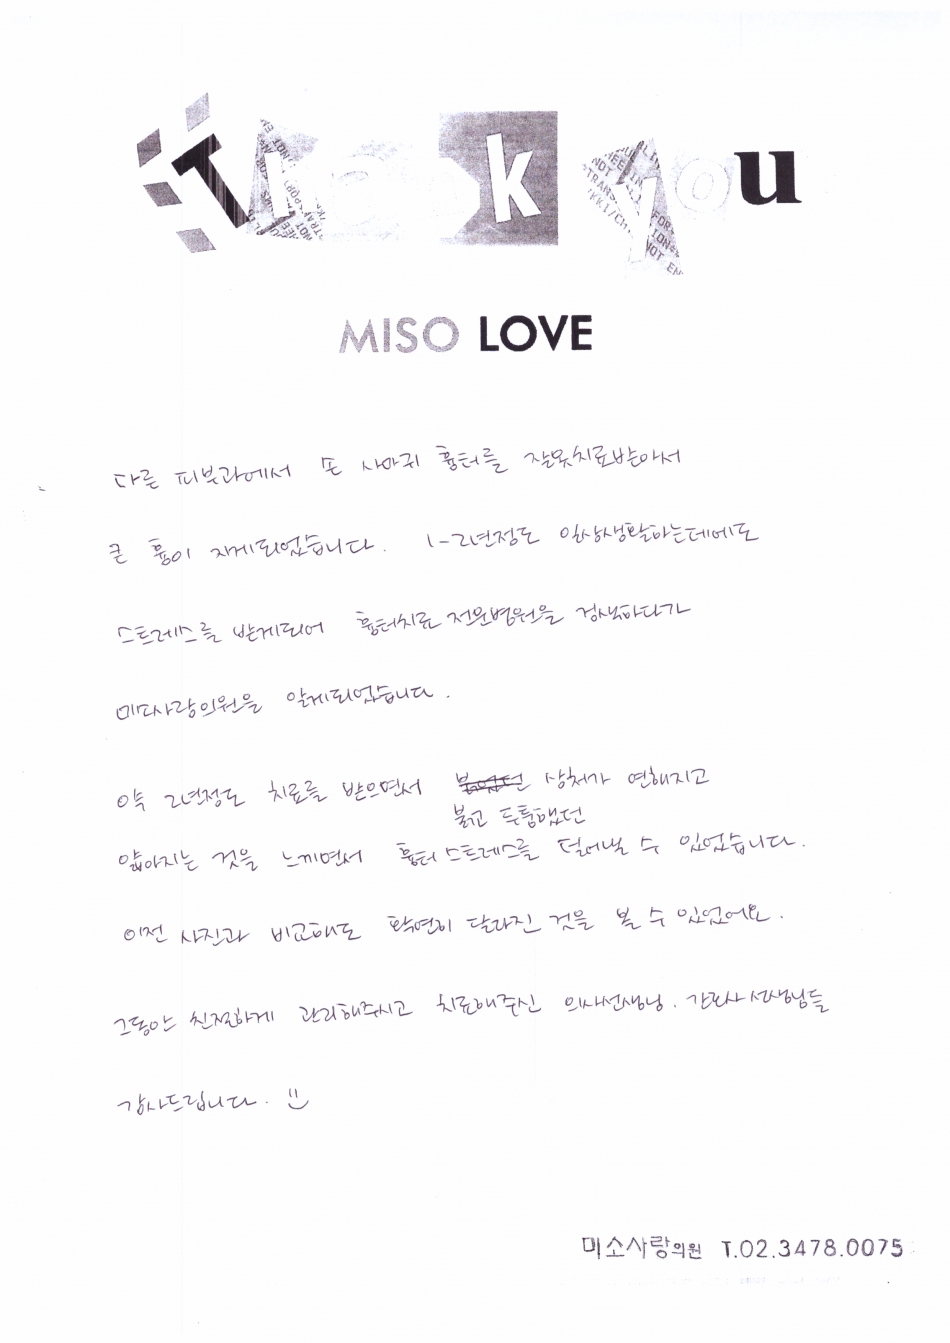 Thank you
MISO LOVE
다른 피부과에서 손 사마귀 흉터를 잘못치료받아서
큰 흉이 지게되었습니다. 1-2년정도 일상생활하는데에도
스트레스를 받게되어 흉터치료 전문병원을 검색하다가
미소사랑의원을 알게되었습니다.
약 2년정도 치료를 받으면서 상처가 연해지고
붉고 두툼했던
얇아지는 것을 느끼면서 흉터 스트레스를 덜어낼 수 있었습니다.
이전 사진과 비교해도 확연히 달라진 것을 볼 수 있었어요.
그동안 친절하게 관리해주시고 치료해주신 의사선생님, 간호사 선생님들
감사드립니다. :)
미소사랑의원 T.02.3478.0075